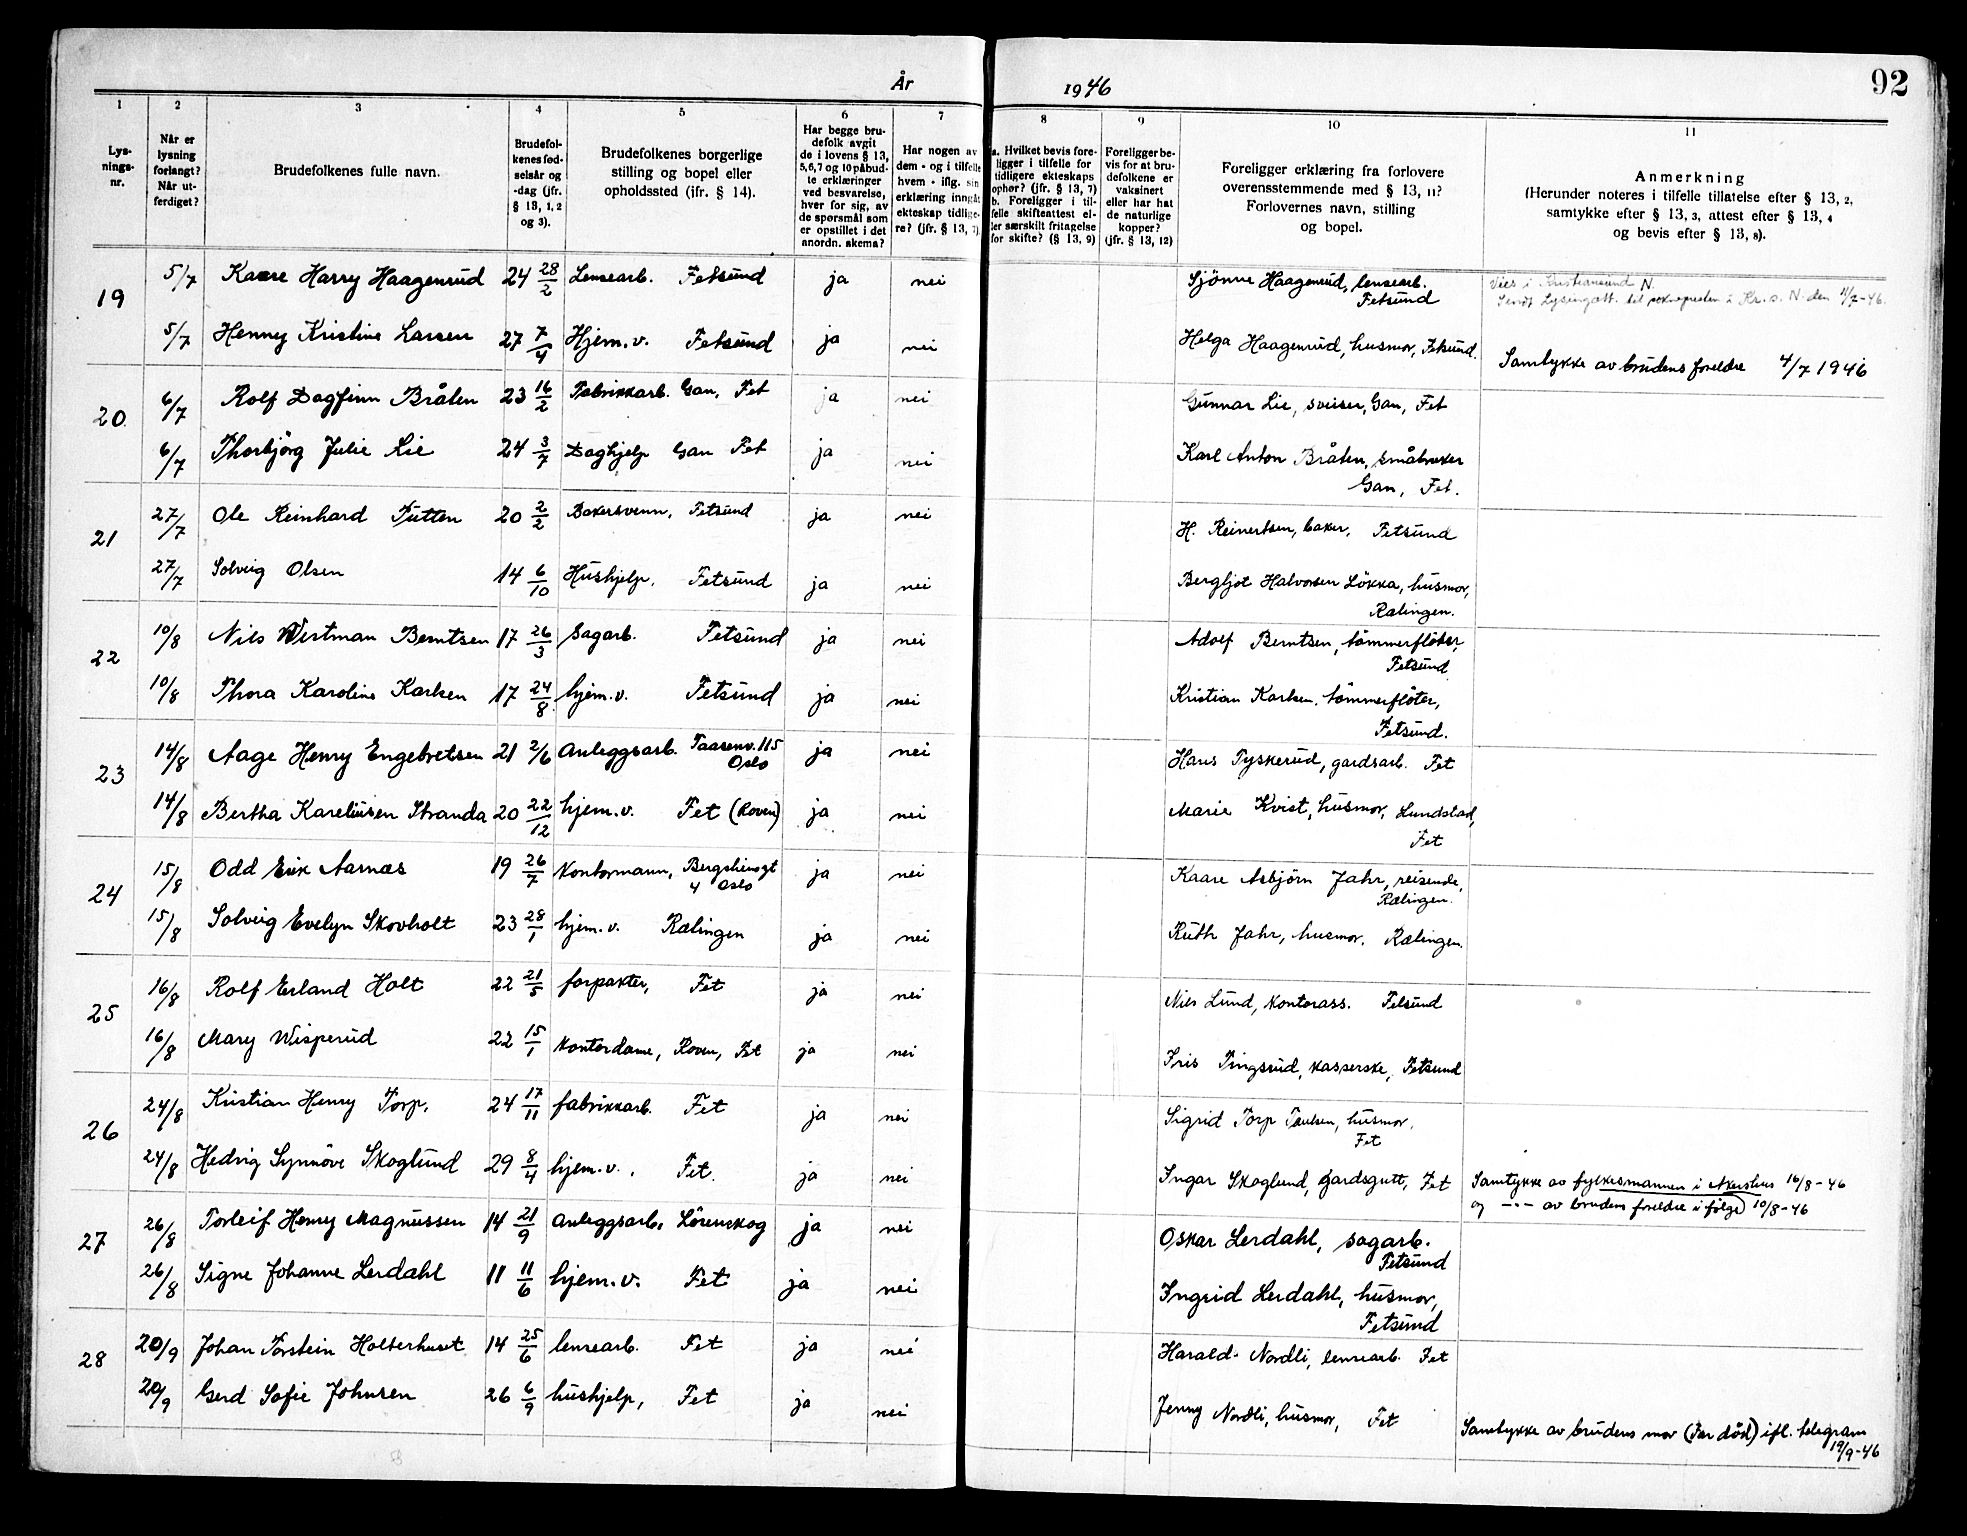 År 1946
92
1 2 3 4 5 6 7 8 9 10 11
Lys-
nings-
nr.
Når er
lysning
forlangt?
Når ut-
ferdiget?
Brudefolkenes fulle navn.
Brudefol-
kenes fød-
selsår og
-dag (jfr.
§ 13, 1, 2
og 3).
Brudefolkenes borgerlige
stilling og bopel eller
opholdssted (ifr. § 14).
Har begge bru-
defolk avgit
de i lovens § 13,
5,6,7 og 10 påbud-
te erklæringer
ved besvarelse,
hver for sig, av
de spørsmål som
er opstillet i det
anordn. skema?
Har nogen av
dem - og i tilfelle
hvem - iflg. sin
erklæring inngåt
ekteskap tidlige-
re? (jfr. § 13, 7)
a. Hvilket bevis fore-
ligger i tilfelle for
tidligere ekteskaps
ophør? (jfr. § 13, 7)
b. Foreligger i til-
felle skifteattest el-
ler særskilt fritagelse
for skifte? (§ 13, 9)
Foreligger be-
vis for at bru-
defolkene er
vaksinert
eller har hat
de naturlige
kopper?
(jfr. § 13, 12)
Foreligger erklæring fra forlovere
overensstemmende med § 13, 11?
Forlovernes navn, stilling
og bopel.
Anmerkning
(Herunder noteres i tilfelle tillatelse efter § 13, 2,
samtykke efter § 13, 3, attest efter § 13, 4
og bevis efter § 13, 8).
19 5/7 Kaare Harry Haagenrud 24 28/2 Lensearb. Fetsund ja nei Sjönne Haagenrud, lensearb. Fetsund
Vies i Kristiansund N.
Sendt Lysingatt. til soknepresten i Kr.s. N. den 11/7-46.
5/7 Henny Kristine Larsen 27 7/4 Hjem.v. Fetsund ja nei Helga Haagenrud, husmor, Fetsund. Samtykke av brudens foreldre 4/7 1946
20 6/7 Rolf Dagfinn Bråten 23 16/2 Fabrikkarb. Gan, Fet ja nei Gunnar Lie, sveiser, Gan, Fet
6/7 Thorbjörg Julie Lie 24 3/7 Daghjelp Gan Fet ja nei Karl Anton Bråten, småbruker
Gan, Fet.
21 27/7 Ole Reinhard Tutten 20 2/2 Bakersvenn, Fetsund ja nei H. Reinertsen, baker, Fetsund
27/7 Solveig Olsen 14 6/10 Hushjelp, Fetsund ja nei Bergljot Halvorsen Lökka, husmor,
Rælingen.
22 10/8 Nils Wertman Berntsen 17 26/3 Sagarb. Fetsund ja nei Adolf Berntsen, tömmerflöter,
Fetsund
10/8 Thora Karoline Karlsen 17 24/8 hjem.v. Fetsund ja nei Kristian Karlsen, tömmerflöter,
Fetsund.
23 14/8 Aage Henry Engebretsen 21 2/6 Anleggsarb. Taasenv. 115
Oslo ja nei Hans Tyskerud, gardsarb. Fet
14/8 Bertha Kareliusen Stranda 20 22/12 hjem.v. Fet (Roven) ja nei Marie Kvist, husmor, Lundstad,
Fet
24 15/8 Odd Erik Aarnæs 19 26/7 Kontormann,
4 Oslo ja nei Kaare Asbjörn Jahr, reisende,
Rælingen.
15/8 Solveig Evelyn Skovholt 23 28/1 hjem.v. Rælingen ja nei Ruth Jahr, husmor. Rælingen.
25 16/8 Rolf Erland Holt 22 21/5 forpakter, Fet ja nei Nils Lund, kontorass. Fetsund
16/8 Mary Wisperud 22 15/1 kontordame, Roven, Fet ja nei Iris Tingsrud, kasserske, Fetsund
26 24/8 Kristian Henry Torp, 24 17/11 fabrikkarb. Fet ja nei Sigrid Torp Paulsen, husmor,
Fet
24/8 Hedvig Synnöve Skoglund 29 8/4 hjem.v., Fet. ja nei Ingar Skoglund, gardsgutt, Fet Samtykke av fylkesmannen i Akershus 16/8-46
og -"- av brudens foreldre ifölge 10/8-46
27 26/8 Torleif Henry Magnussen 14 21/9 Anleggsarb. Lörenskog ja nei Oskar Lerdahl, sagarb.
Fetsund
26/8 Signe Johanne Lerdahl 11 11/6 hjem.v. Fet ja nei Ingrid Lerdahl, husmor,
Fetsund
28 20/9 Johan Torstein Holterhuset 14 25/6 lensearb. Fet ja nei Harald Nordli, lensearb. Fet
20/9 Gerd Sofie Johnsen 26 6/9 hushjelp, Fet ja nei Jenny Nordli, husmor, Fet Samtykke av brudens mor (Far död) ifl. telegram
19/9-46